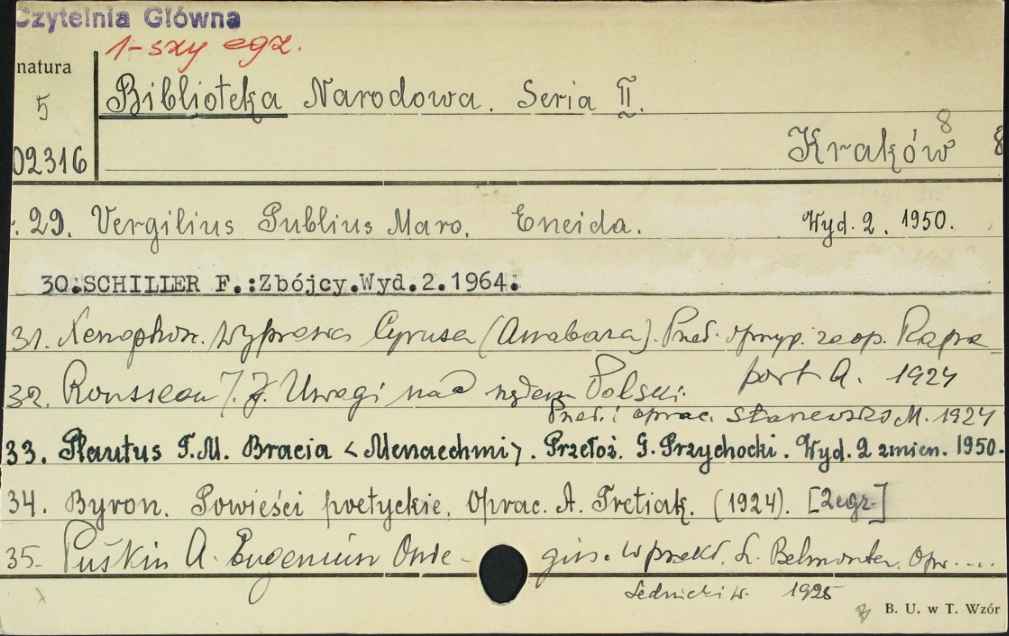 Czytelnia Główna
1-szy egz.
natura
5
Biblioteka Narodowa. Seria II.
8
02316
Kraków 8
. 29. Vergilius Publius Maro. Eneida. Wyd. 2. 1950.
30.SCHILLER F.:Zbójcy.Wyd.2.1964.
31. Xenophon. Wyprawa Cyrusa (Anabaza). Przeł. zaop. Rapa-
port A. 1924
32. Rousseau J. J. Uwagi nad rządem Polski.
Przeł. i oprac. Staniewski M. 1924
33. Plautus T.M. Bracia <Menaechmi>. Przełoż. G. Przychocki. Wyd. 2 zmien. 1950.
34. Byron. Powieści poetyckie. Oprac. A. Tretiak. (1924). [2egz.]
35. Puškin A. Eugeniusz Onie- gin. W przekł. L. Belmonta. Opr....
Lednicki W. 1925
B. U. w T. Wzór